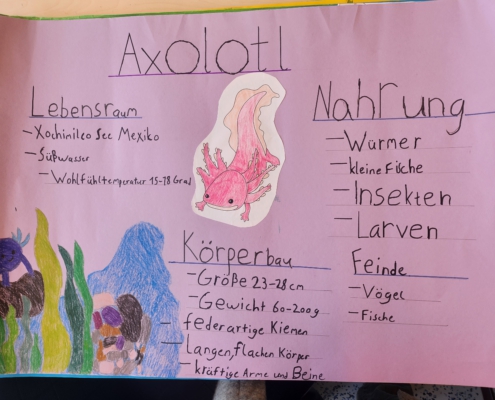 Axolotl
Lebensraum
- Xochinilco See Mexiko
- Süßwasser
- Wohlfühltemperatur 15-18 Grad
Nahrung
- Würmer
- kleine Fische
- Insekten
- Larven
Körperbau
- Größe 23-28cm
- Gewicht 60-200g
- federartige Kiemen
- Langen, flachen Körper
- kräftige Arme und Beine
Feinde
- Vögel
- Fische